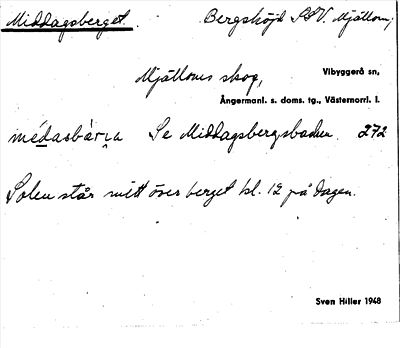 Middagsberget. Bergshöjd SSV. Mjällom,
Mjälloms skog, Vibyggerå sn,
Ångermanl. s. doms. tg., Västernorrl. l.
Se Middagsbergsboden. 272
Solen står mitt över berget kl. 12 på dagen.
Sven Hiller 1948